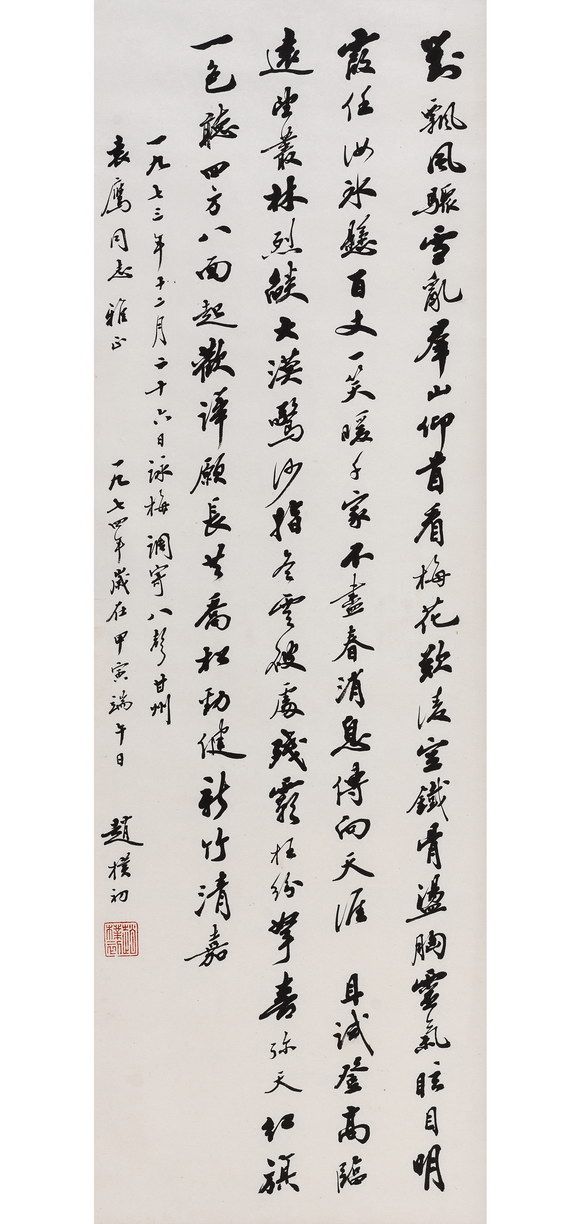 對飄風驟雪亂羣山仰首看梅花歎凌空鐵骨盪胸靈氣眩目明
霞任汝冰懸百丈一笑暖千家不盡春消息傳向天涯 且試登高臨
遠望叢林烈燄大漠驚沙指冬雲破處殘霸枉紛拏喜彌天紅旗
一色聽四方八面起歡譁願長共喬松勁健新竹清嘉
一九七三年十二月二十六日詠梅調寄八聲甘州
袁鷹同志雅正 一九七四年歲在甲寅端午日 趙樸初
趙樸初